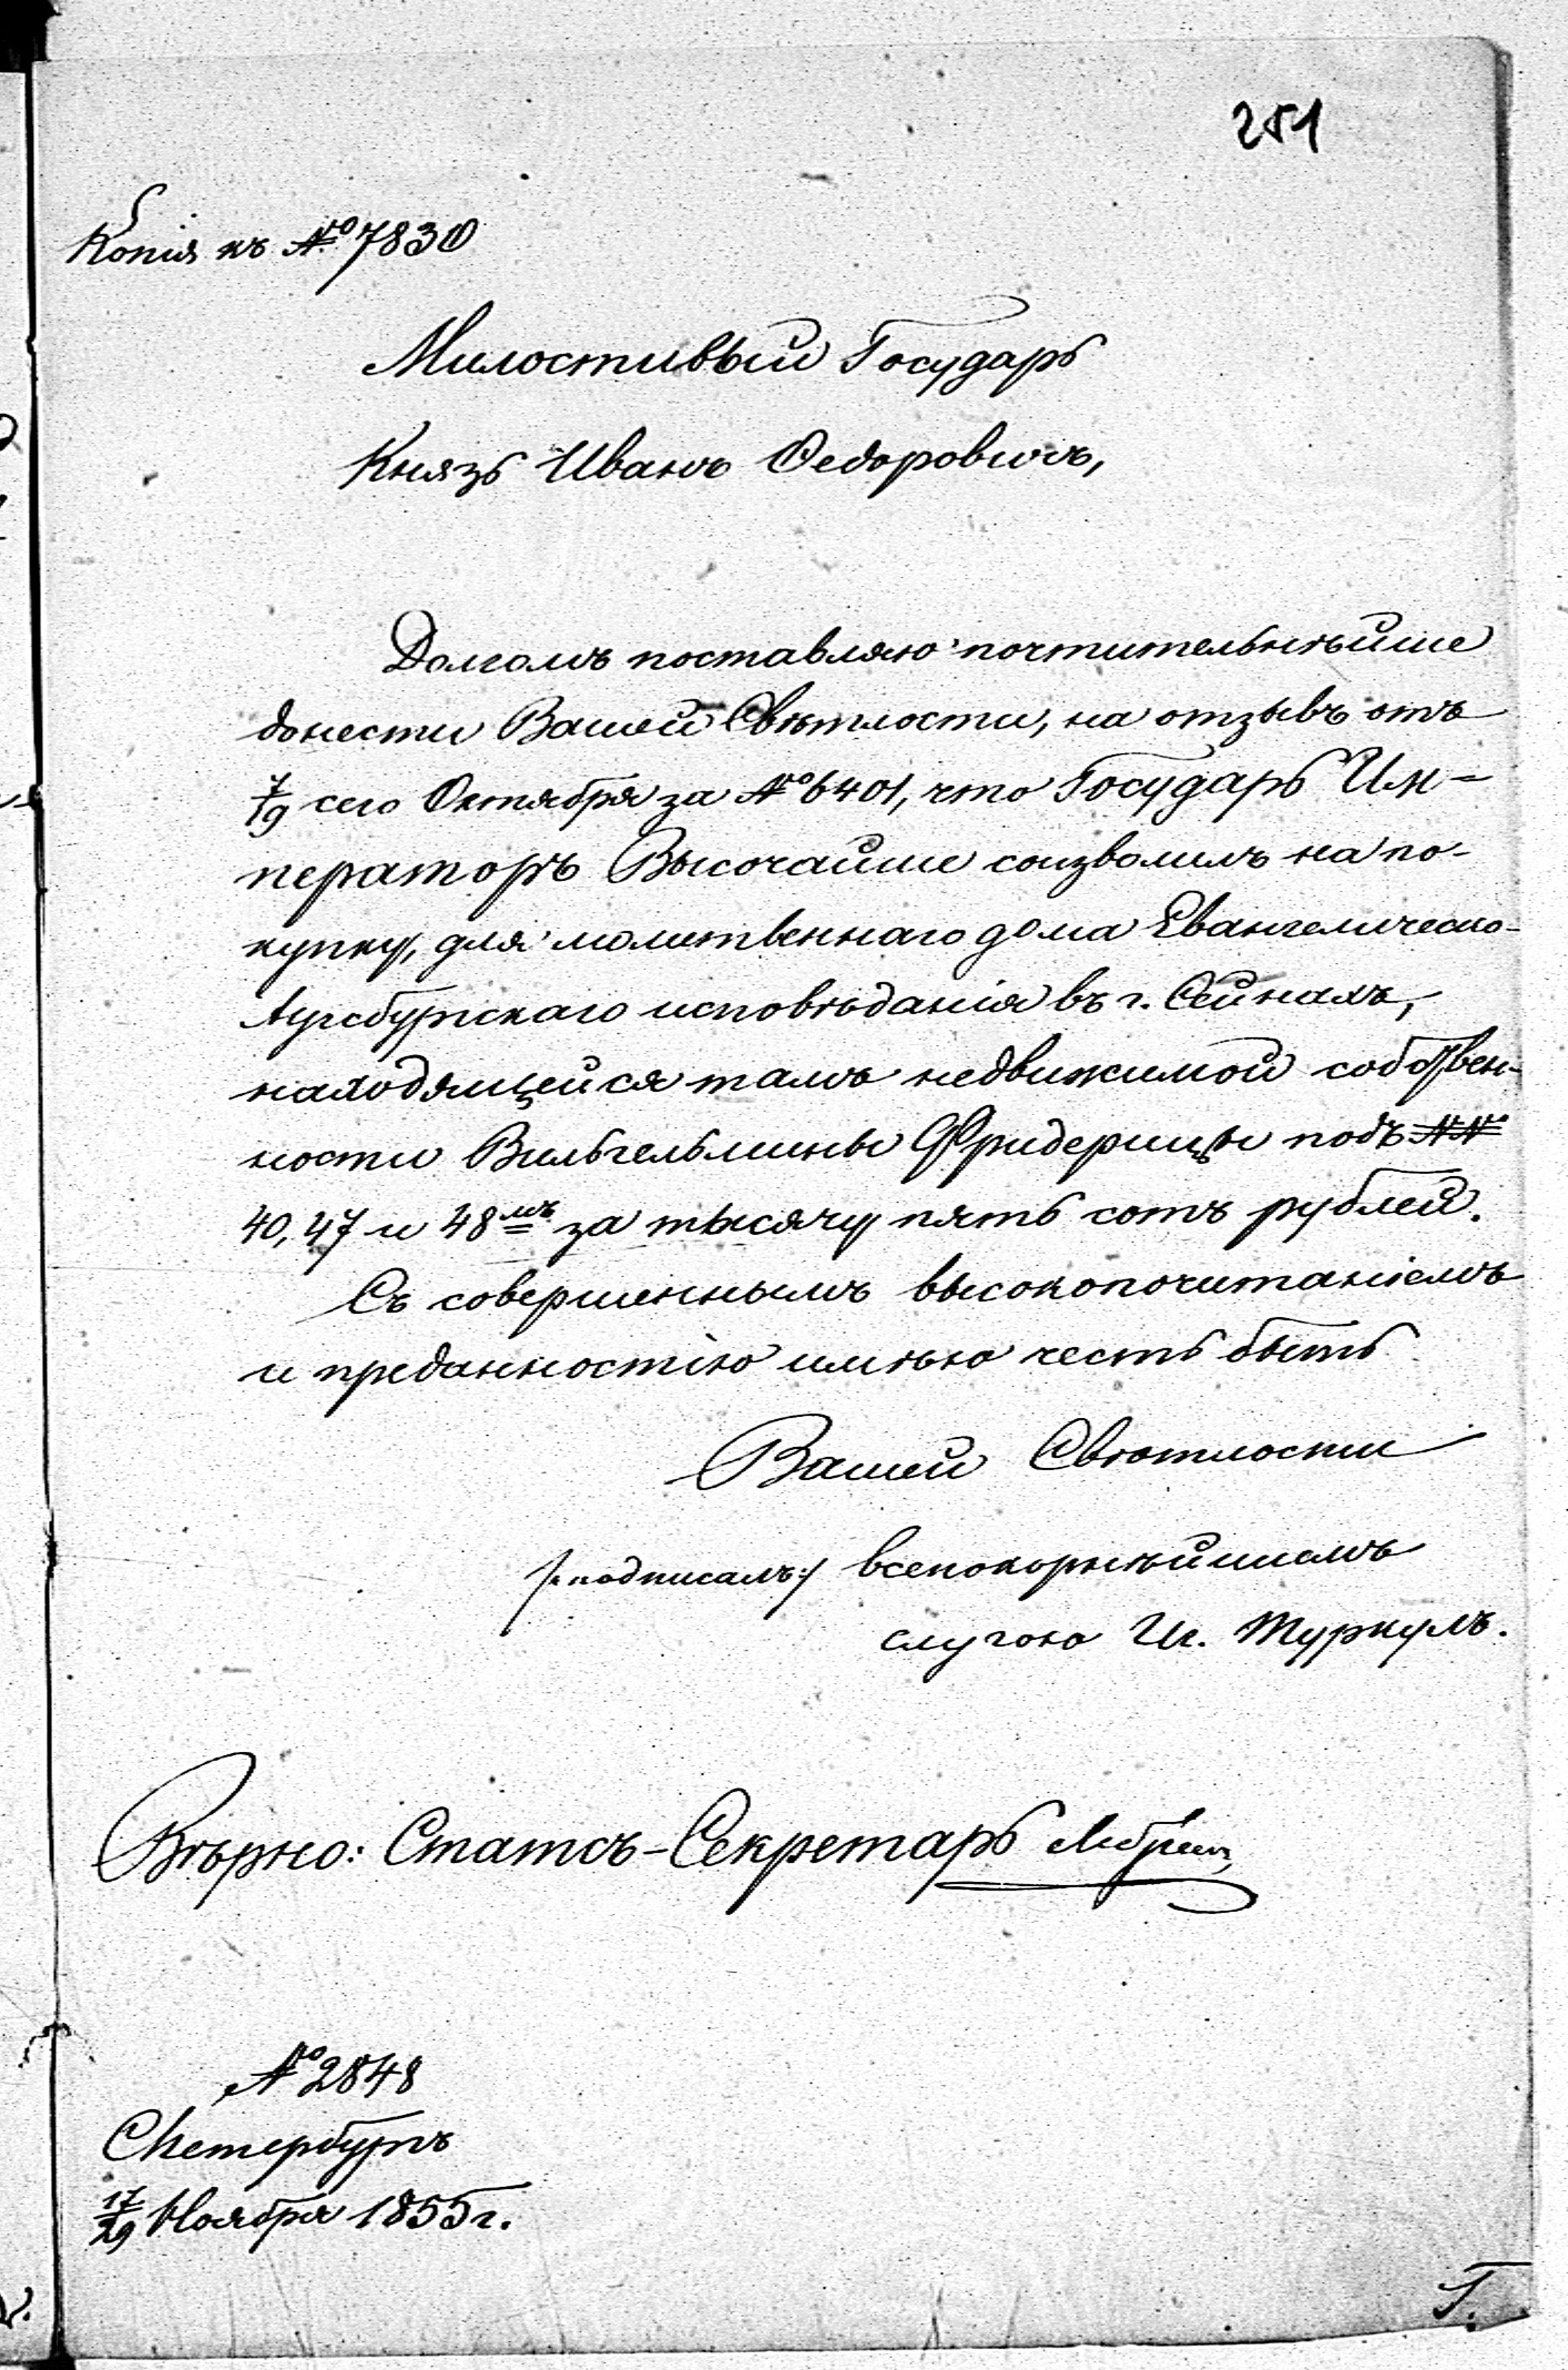 251
Копія къ № 7830
Милостивый Государь
Князь Иванъ Ѳедоровичъ,
Долгомъ поставляю почтительнѣйше
донести Вашей Свѣтлости, на отзывъ отъ
7/19 сего Октября за № 6401, что Государь Им-
ператоръ Высочайше соизволилъ на по-
купку, для молитвеннаго дома Евангелическо-
Аугсбургскаго исповѣданія въ г. Сейнахъ,
находящейся тамъ недвижимой собствен-
ности Вильгельмины Фридерицы подъ №№
40, 47 и 48мъ за тысячу пять сотъ рублей.
Съ совершеннымъ высокопочитаніемъ
и преданностію имѣю честь быть
Вашей Свѣтлости
/:подписалъ:/ всепокорнѣйшимъ
слугою Иг. Туркулъ.
Вѣрно: Статсъ-Секретарь
№ 2848
СПетербургъ
17/29 Ноября 1855 г.
Г.